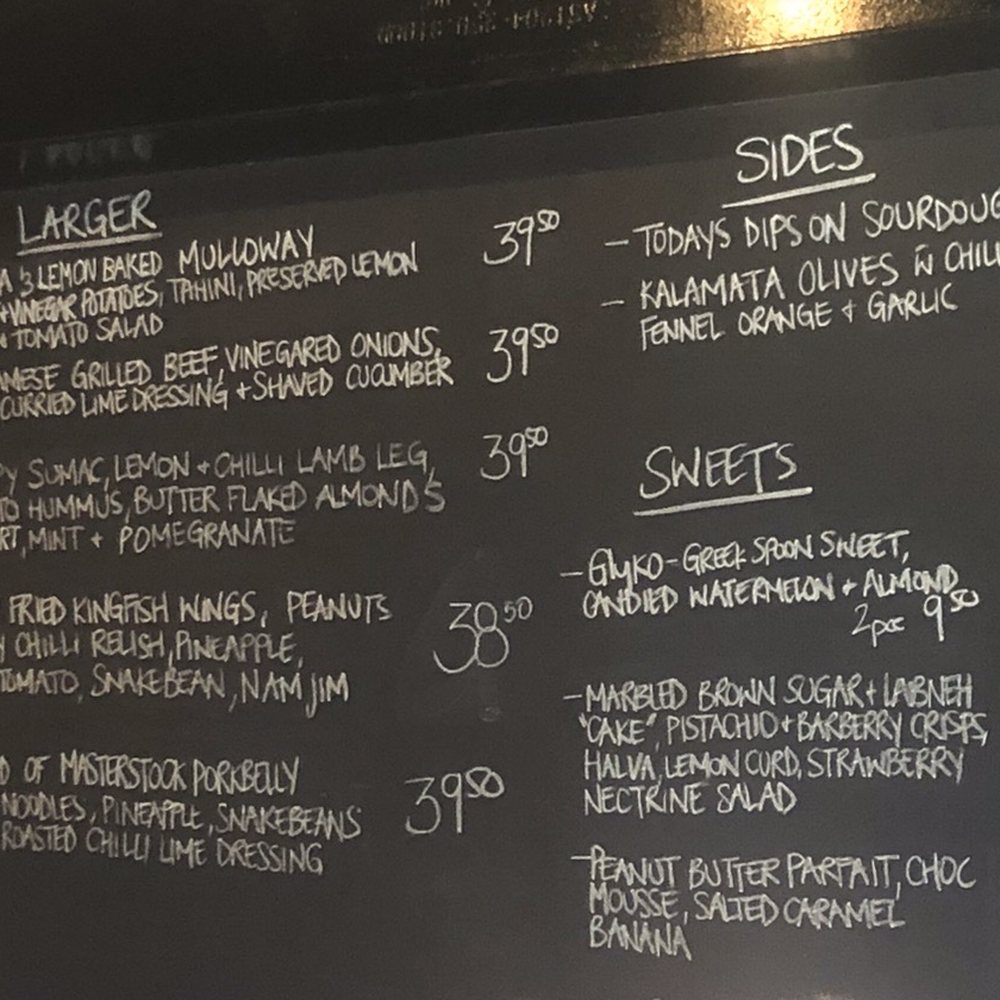 LARGER
3 LEMON BAKED MULLOWAY 39.50
+ VINEGAR POTATOES, TAHINI, PRESERVED LEMON
TOMATO SALAD
GRILLED BEEF, VINEGARED ONIONS, 39.50
CURRIED LIME DRESSING + SHAVED CUCUMBER
SUMAC, LEMON + CHILLI LAMB LEG, 39.50
HUMMUS, BUTTER FLAKED ALMONDS
MINT + POMEGRANATE
FRIED KINGFISH WINGS, PEANUTS 38.50
CHILLI RELISH, PINEAPPLE,
TOMATO, SNAKEBEAN, NAM JIM
OF MASTERSTOCK PORKBELLY 39.50
NOODLES, PINEAPPLE, SNAKEBEANS
ROASTED CHILLI LIME DRESSING
SIDES
- TODAYS DIPS ON SOURDOUG
- KALAMATA OLIVES W CHILL
FENNEL ORANGE + GARLIC
SWEETS
- GlyKO - GREEK SPOON SWEET,
CANDIED WATERMELON + ALMOND
2pce 9.50
- MARBLED BROWN SUGAR + LABNEH
"CAKE", PISTACHIO + BARBERRY CRISPS,
HALVA, LEMON CURD, STRAWBERRY
NECTRINE SALAD
- PEANUT BUTTER PARFAIT, CHOC
MOUSSE, SALTED CARAMEL
BANANA